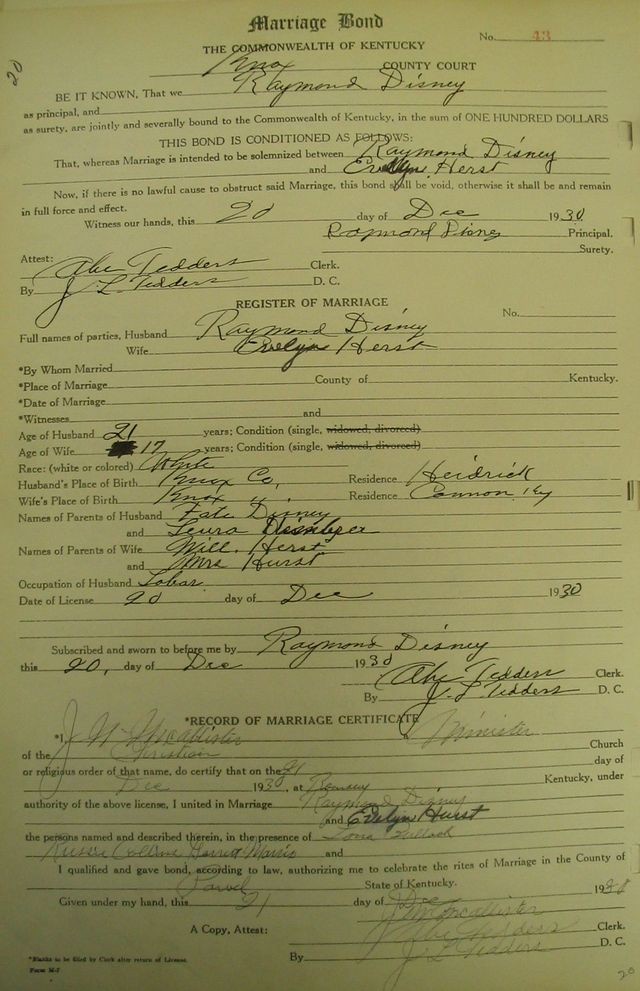 Marriage Bond
No. 43
THE COMMONWEALTH OF KENTUCKY
20
Knox COUNTY COURT
BE IT KNOWN, That we Raymond Disney
as principal, and
as surety, are jointly and severally bound to the Commonwealth of Kentucky, in the sum of ONE HUNDRED DOLLARS
THIS BOND IS CONDITIONED AS FOLLOWS:
That, whereas Marriage is intended to be solemnized between Raymond Disney
and Evelyn Herst
Now, if there is no lawful cause to obstruct said Marriage, this bond shall be void, otherwise it shall be and remain
in full force and effect.
Witness our hands, this 20 day of Dec 1930
Raymond Disney Principal.
Surety.
Attest:
Abe Tedders Clerk.
By J L Tedders D. C.
REGISTER OF MARRIAGE
No.
Full names of parties, Husband Raymond Disney
Wife Evelyn Herst
*By Whom Married
*Place of Marriage County of Kentucky.
*Date of Marriage
*Witnesses and
Age of Husband 21 years; Condition (single, widowed, divorced)
Age of Wife 17 years; Condition (single, widowed, divorced)
Race: (white or colored) White
Husband's Place of Birth Knox Co, Residence Heidrick
Wife's Place of Birth Knox " Residence Cannon, Ky
Names of Parents of Husband Fate Disney
and Laura
Names of Parents of Wife Will Herst
and Mrs Hurst
Occupation of Husband Labar
Date of License 20 day of Dec 1930
Subscribed and sworn to before me by Raymond Disney
this 20, day of Dec 1930
Abe Tedders Clerk.
By J. L Tedders D. C.
*RECORD OF MARRIAGE CERTIFICATE
*I, J W McAllister a Minister
of the Christian Church
or religious order of that name, do certify that on the 21 day of
Dec 1930, at Kentucky, under
authority of the above license, I united in Marriage Raymond Disney
and Evelyn Hurst
the persons named and described therein, in the presence of
Collins Garrett Morris and
I qualified and gave bond, according to law, authorizing me to celebrate the rites of Marriage in the County of
State of Kentucky.
Given under my hand, this 21 day of Dec 1930
J W McAllister
A Copy, Attest: Abe Tedders Clerk.
By J L Tedders D. C.
*Blanks to be filed by Clerk after return of License.
Form M-7
20